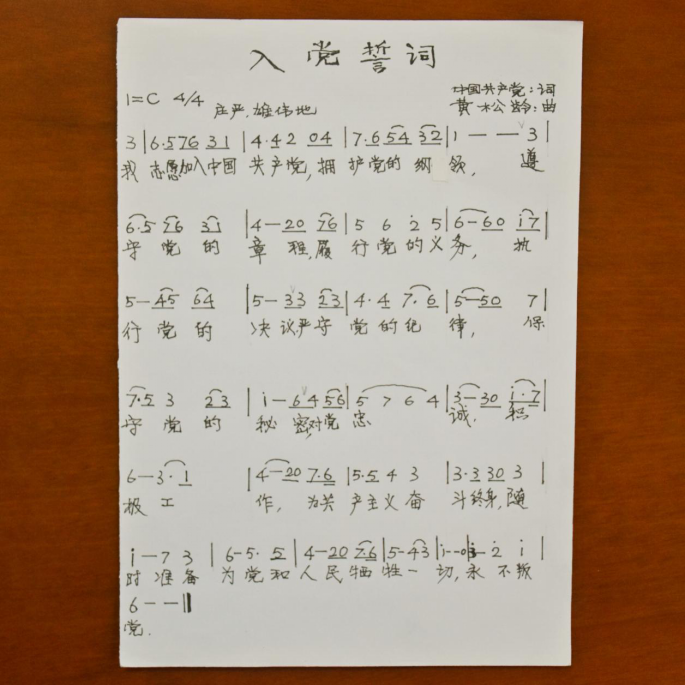 入党誓词
1=C 4/4 庄严.雄伟地 中国共产党:词
黄松龄:曲
3|6·576 31|4·42 04|7·654 32|1 — — 3|
我志愿加入中国 共产党,拥护党的纲领, 遵
6·5 76 31|4—20 76|5 6 2 5|6—60 i7|
守党的章程,履行党的义务, 执
5—45 64|5—33 23|4·4 7·6|5—50 7|
行党的决议严守党的纪律, 保
7·5 3 23|i—64 56|5 7 6 4|3—30 i·7|
守党的秘密,对党忠诚.积
6—3·1|4—20 7·6|5·5 4 3|3·3 30 3|
极工作, 为共产主义奋斗终身,随
i—7 3|6—5·5|4—20 7·6|5—43|i—03— 2 i|
时准备为党和人民牺牲一切,永不叛
6 — —‖
党.